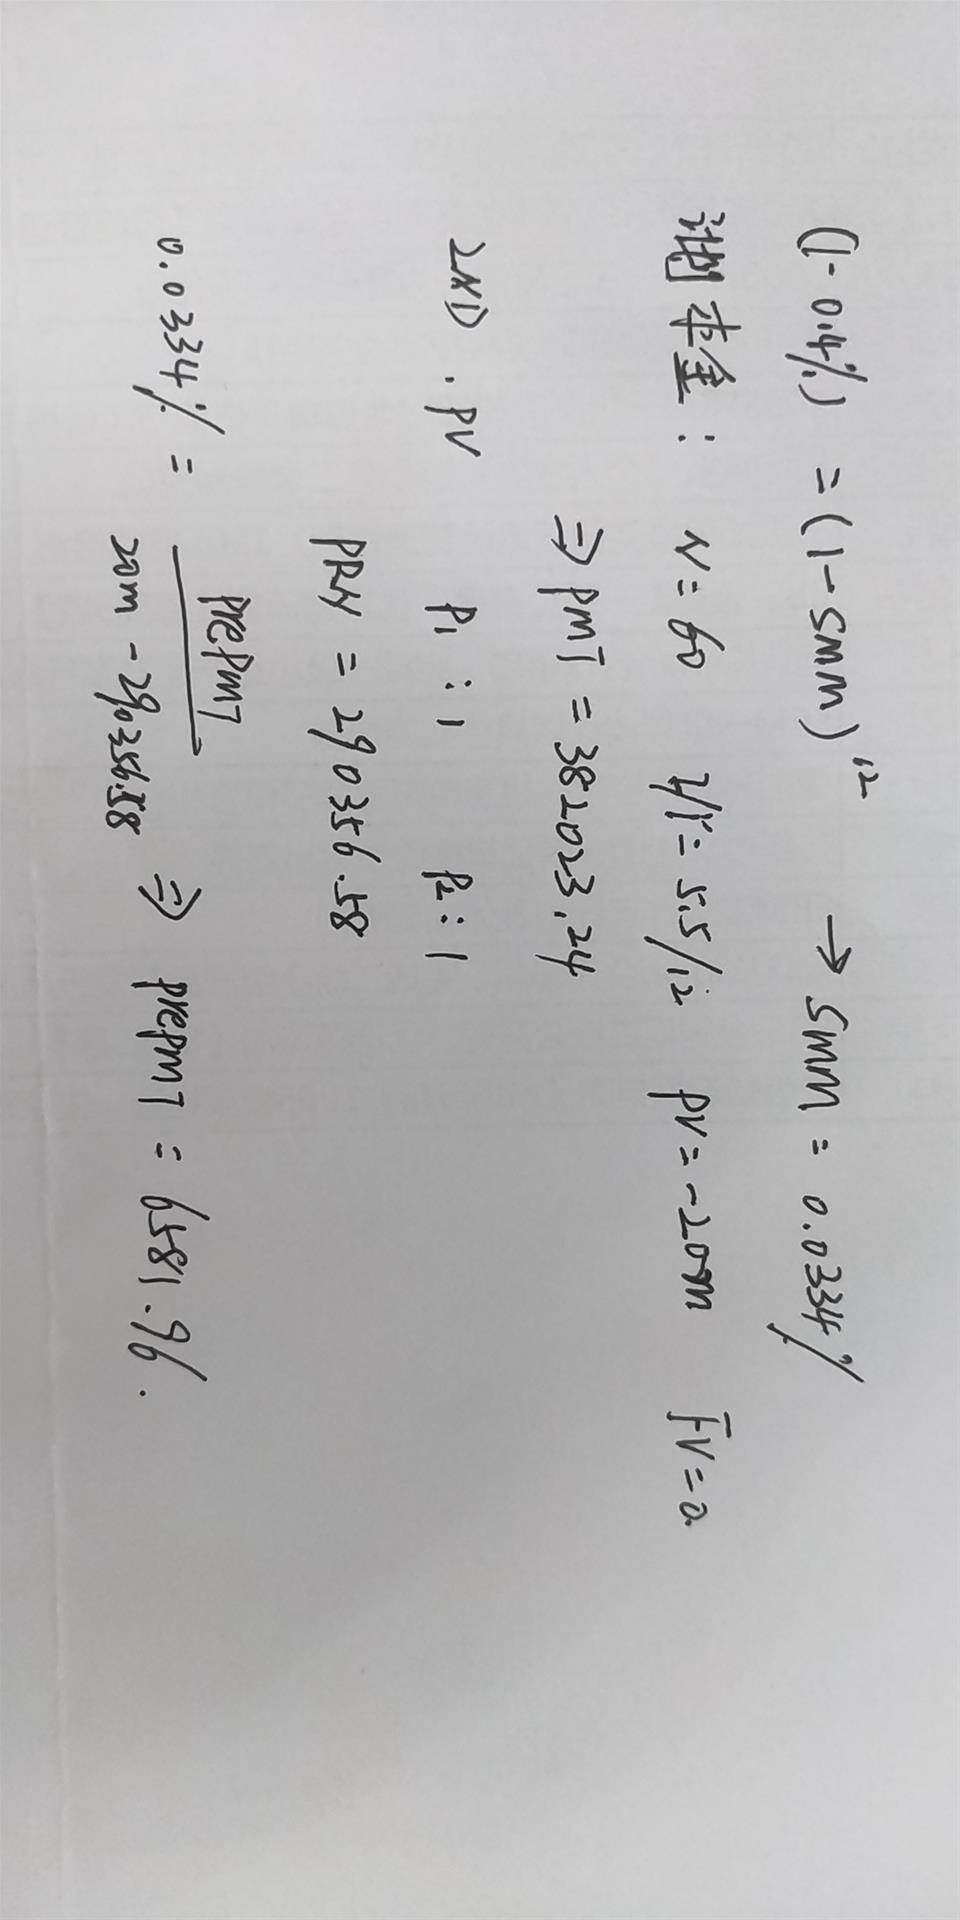 (1-0.4%) = (1-SMM)^12 → SMM = 0.0334%
计划本金: N=60 I/Y=5.5/12 PV=-20m FV=0.
⇒ PMT = 382023.24
2ND . PV P1:1 P2:1
PRN = 290356.58
0.0334% = prepmT / 20m - 290356.58 ⇒ prepmT = 6581.96.